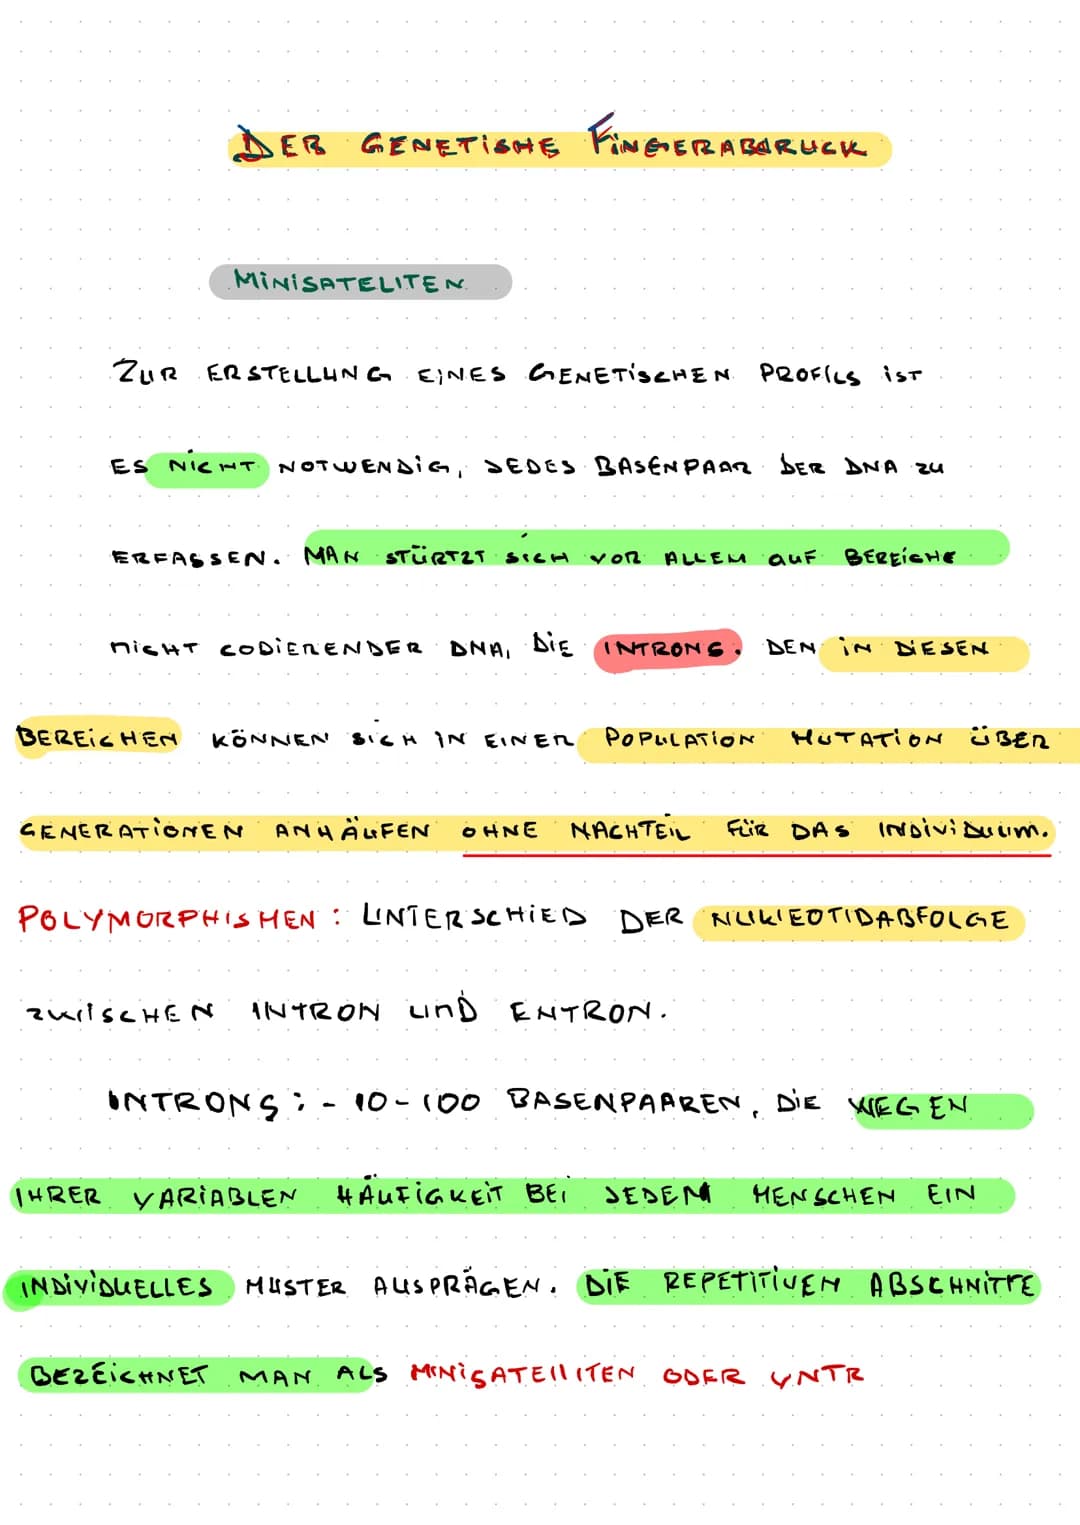 DER GENETISHE FINGERABDRUCK
MINISATELITEN
ZUR ERSTELLUNG EINES GENETISCHEN PROFILS IST
ES NICHT NOTWENDIG, JEDES BASENPAAR DER DNA ZU
ERFASSEN. MAN STÜRTZT SICH VOR ALLEM AUF BEREICHE
NICHT CODIERENDER DNA, DIE INTRONS. DEN IN DIESEN
BEREICHEN KÖNNEN SICH IN EINER POPULATION MUTATION ÜBER
GENERATIONEN ANHÄUFEN OHNE NACHTEIL FÜR DAS INDIVIDUUM.
POLYMORPHISMEN: UNTERSCHIED DER NUKLEOTIDABFOLGE
ZWISCHEN INTRON UND ENTRON.
INTRONS: - 10-100 BASENPAAREN, DIE WEGEN
IHRER VARIABLEN HÄUFIGKEIT BEI JEDEM MENSCHEN EIN
INDIVIDUELLES MUSTER AUSPRÄGEN. DIE REPETITIVEN ABSCHNITTE
BEZEICHNET MAN ALS MINISATELLITEN ODER VNTR